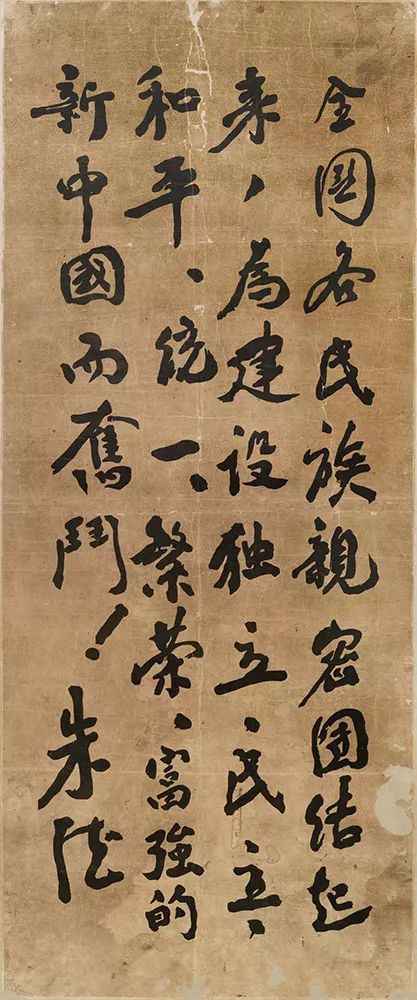 全国各民族親密团结起
来，為建设独立、民主、
和平、统一、繁荣、富強的
新中國而奮鬥！朱德